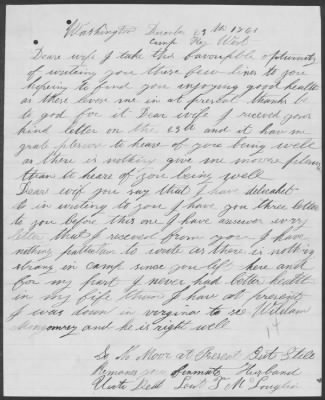 Washington December 1861
Camp Key West
Dear wife I take this favourple opetunity
of writing you these few lines to you
hoping to find you injoying good health
as these leves me in at presant thanks be
to god for it Dear wife I receved your
kind letter on the 23th and it gave me
grate plesure to heare of you being well
as there is nothing give me moore plesure
than to heare of you being well
Deare wife you say that I have delicatet
in writing to you I have you three letter
to you before this one I have answer evry
letter that I receved from you I have
nothing particular to wrote as there is nothing
strang in camp sense you left here and
for my part I never had beter health
in my life than I have at presant
I was down in verginia to see William
Mongomrey and he is right well
14
So No Moor at Present But Still
Remanes your Husband
Unto Death T Mc Loughlin